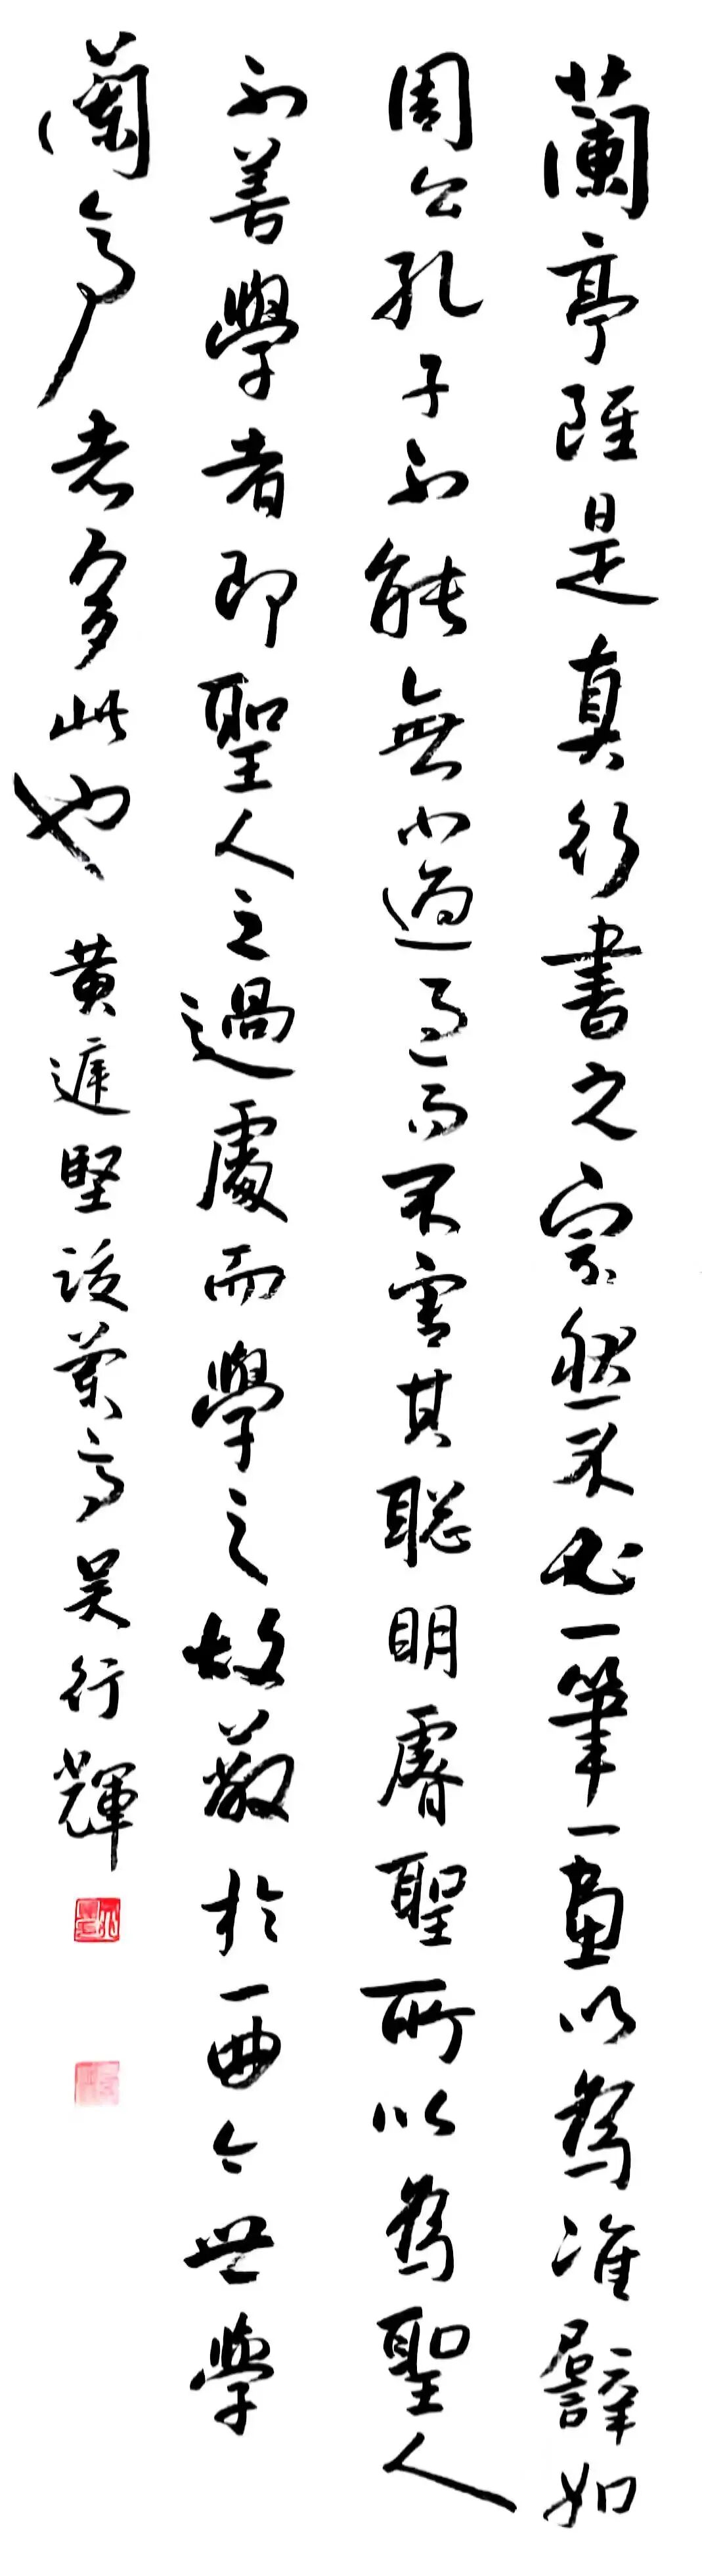 蘭亭雖是真行書之宗然不必一筆一畫以為准譬如
周公孔子不能無小過過而不害其聰明睿聖所以為聖人
不善學者即聖人之過處而學之故蔽於一曲今世學
蘭亭者多此也 黃庭堅跋蘭亭 吳行輝